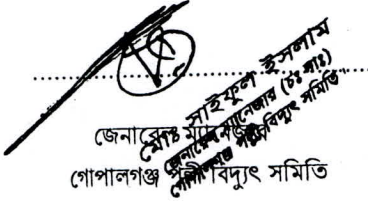 মোঃ সাইফুল ইসলাম
জেনারেল ম্যানেজার (চঃ দাঃ)
গোপালগঞ্জ পল্লী বিদ্যুৎ সমিতি
জেনারেল ম্যানেজার
গোপালগঞ্জ পল্লী বিদ্যুৎ সমিতি